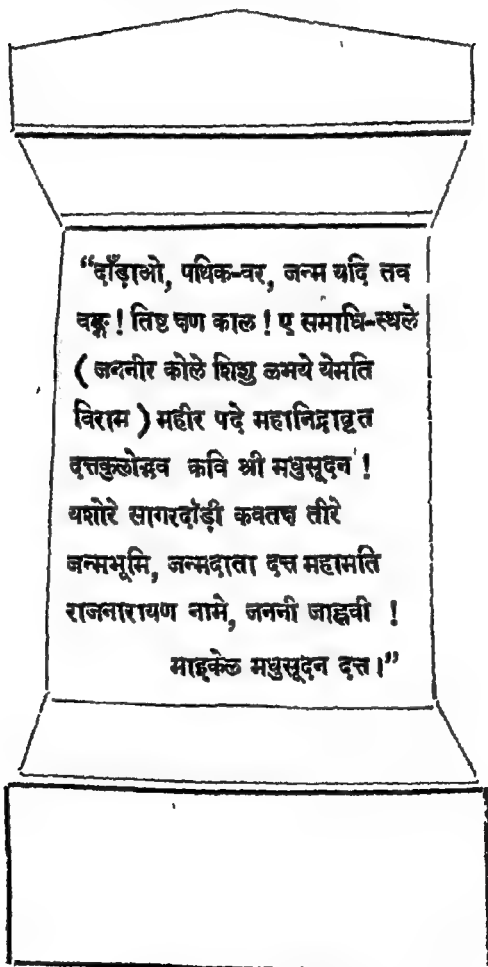 “दाँड़ाओ, पथिक-वर, जन्म यदि तव
वङ्गे ! तिष्ट क्षण काल ! ए समाधि-स्थले
( जननीर कोले शिशु लभये येमति
विराम ) महीर पदे महानिद्रावृत
दत्तकुलोद्भव कवि श्री मधुसूदन !
यशोरे सागरदाँड़ी कवतक्ष तीरे
जन्मभूमि, जन्मदाता दत्त महामति
राजनारायण नामे, जननी जाह्नवी !
माइकेल मधुसूदन दत्त।”